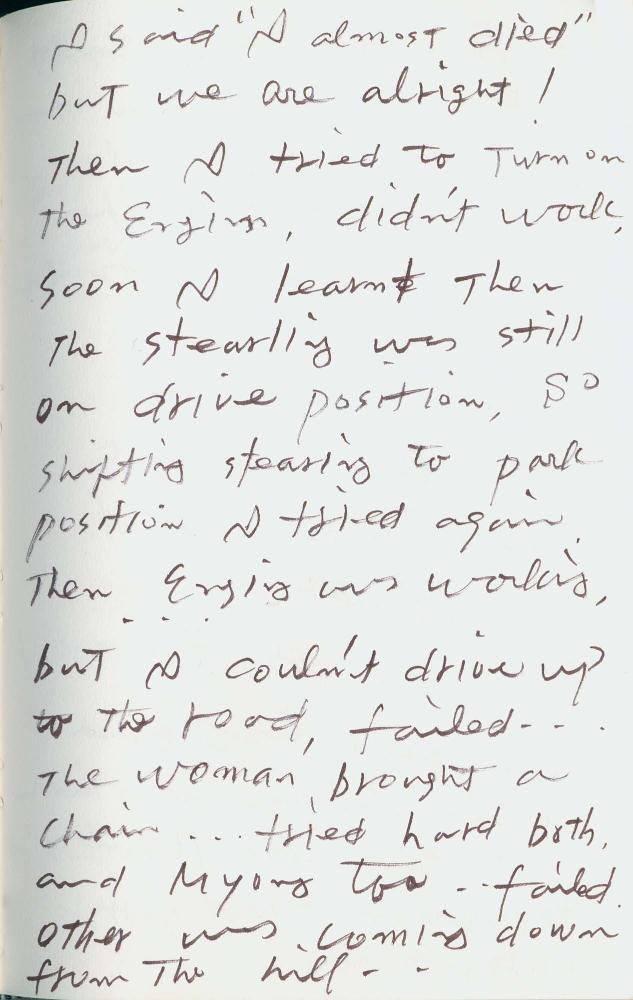 I said "I almost died"
but we are alright!
Then I tried to Turn on
the Engine, didn't work,
Soon I learnt Then
The stearling was still
on drive position, So
shifting stearing to park
position I tried again.
Then Engin was working,
but I couldn't drive up
to The road, failed---.
The woman brought a
Chain... tried hard both,
and Myong Too --failed.
other was coming down
from The hill--